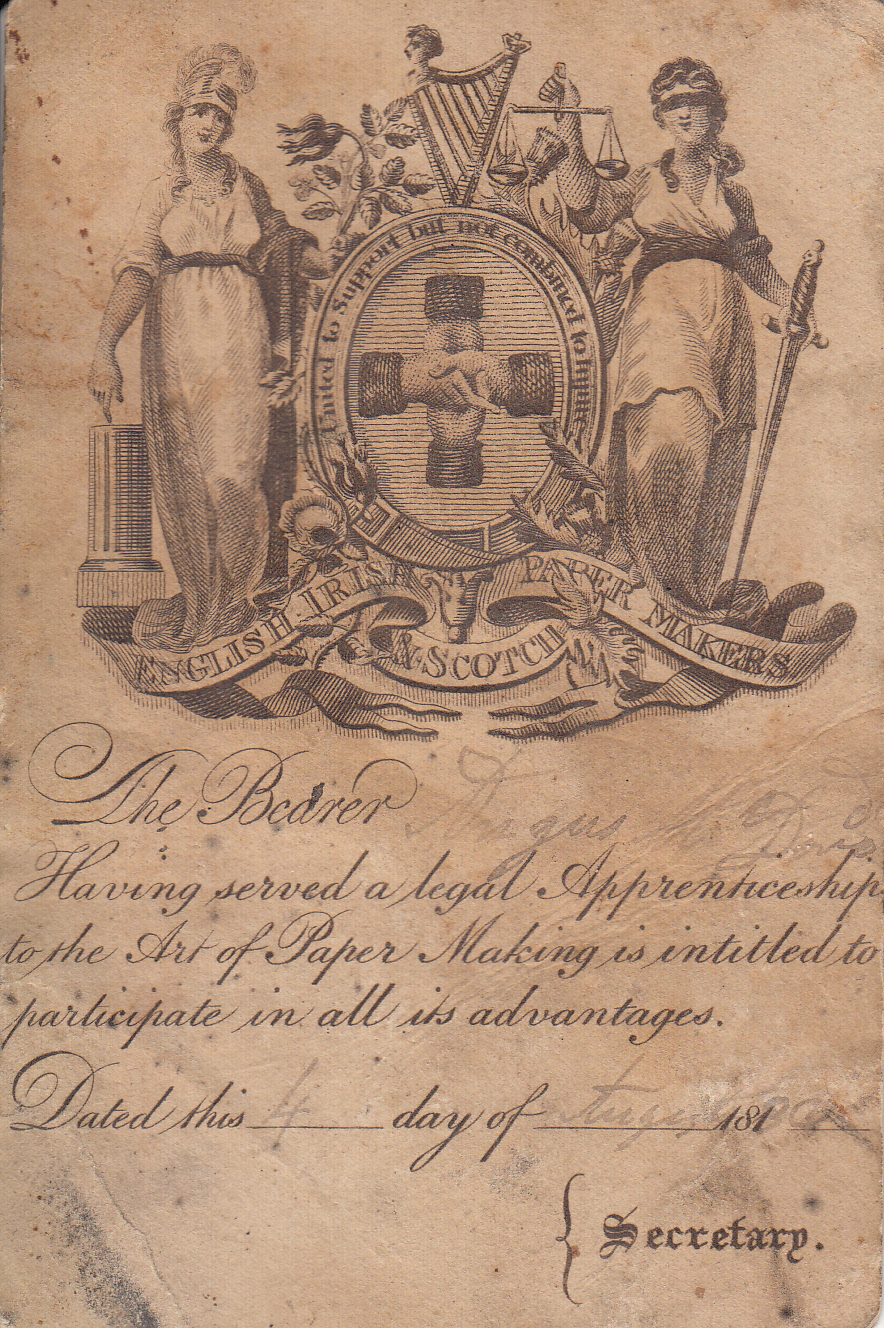 United to Support but not combined to Injure
ENGLISH IRISH PAPER MAKERS
& SCOTCH
The Bearer Angus
Having served a legal Apprenticeship
to the Art of Paper Making is intitled to
participate in all its advantages.
Dated this 4 day of August 181
Secretary.